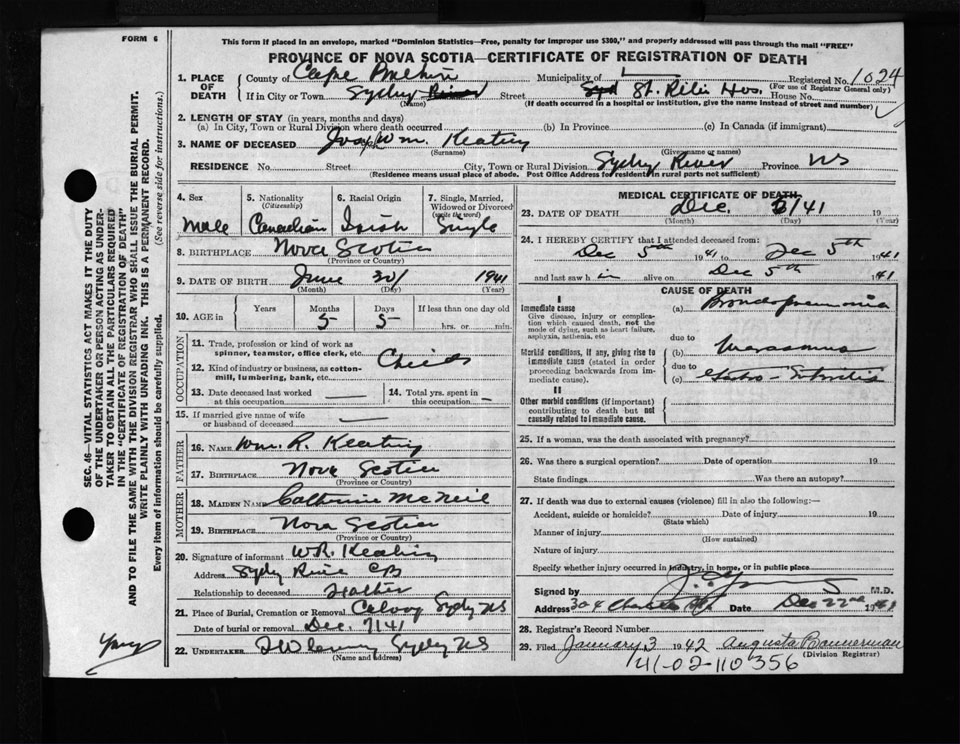 FORM 6
This form if placed in an envelope, marked "Dominion Statistics—Free, penalty for improper use $300," and properly addressed will pass through the mail "FREE"
PROVINCE OF NOVA SCOTIA—CERTIFICATE OF REGISTRATION OF DEATH
1. PLACE OF DEATH
County of Cape Breton Municipality of Registered No. 1624
(For use of Registrar General only)
If in City or Town Sydney River Street Syd St. Ritis Hos. House No.
(Name) (If death occurred in a hospital or institution, give the name instead of street and number)
2. LENGTH OF STAY (in years, months and days)
(a) In City, Town or Rural Division where death occurred (b) In Province (c) In Canada (if immigrant)
3. NAME OF DECEASED Wm. Keating
(Surname) (Given name or names)
RESIDENCE No. Street City, Town or Rural Division Sydney River Province NS
(Residence means usual place of abode. Post Office Address for residents in rural parts not sufficient)
4. Sex
Male
5. Nationality
(Citizenship)
Canadian
6. Racial Origin
Irish
7. Single, Married, Widowed or Divorced
(write the word)
Single
8. BIRTHPLACE Nova Scotia
(Province or Country)
9. DATE OF BIRTH June 30/ 1941
(Month) (Day) (Year)
10. AGE in
Years Months Days If less than one day old
5 5 hrs. or min.
OCCUPATION
11. Trade, profession or kind of work as
spinner, teamster, office clerk, etc.
12. Kind of industry or business, as cotton-
mill, lumbering, bank, etc. Child
13. Date deceased last worked
at this occupation —
14. Total yrs. spent in
this occupation —
15. If married give name of wife
or husband of deceased —
FATHER
16. NAME Wm. R. Keating
17. BIRTHPLACE Nova Scotia
(Province or Country)
MOTHER
18. MAIDEN NAME Catherine McNeil
19. BIRTHPLACE Nova Scotia
(Province or Country)
20. Signature of informant W.R. Keating
Address Sydney River CB
Relationship to deceased Father
21. Place of Burial, Cremation or Removal Sydney NS
Date of burial or removal Dec. 7/41
22. UNDERTAKER Sydney NS
(Name and Address)
MEDICAL CERTIFICATE OF DEATH
23. DATE OF DEATH Dec. /41 19
(Month) (Day) (Year)
24. I HEREBY CERTIFY that I attended deceased from:
Dec 5th 1941 to Dec 5th 1941
and last saw h im alive on Dec 5th 1941
CAUSE OF DEATH
I
Immediate cause
Give disease, injury or complica-
tion which caused death, not the
mode of dying, such as heart failure,
asphyxia, asthenia, etc
(a) Bronchopneumonia
due to
Morbid conditions, if any, giving rise to
immediate cause (stated in order
proceeding backwards from im-
mediate cause).
(b) Marasmus
due to
(c)
II
Other morbid conditions (if important)
contributing to death but not
causally related to immediate cause.
25. If a woman, was the death associated with pregnancy?
26. Was there a surgical operation? Date of operation 19
State findings Was there an autopsy?
27. If death was due to external causes (violence) fill in also the following:—
Accident, suicide or homicide? Date of injury 19
(State which)
Manner of injury
(How sustained)
Nature of injury
Specify whether injury occurred in industry, in home, or in public place
Signed by M.D.
Address 304 Charlotte Date Dec 22nd 1941
28. Registrar's Record Number
29. Filed January 3 1942 Augusta Bannerman
(Division Registrar)
41-02-110356
SEC. 46—VITAL STATISTICS ACT MAKES IT THE DUTY
OF THE UNDERTAKER OR PERSON ACTING AS UNDER-
TAKER TO OBTAIN ALL THE PARTICULARS REQUIRED
IN THE "CERTIFICATE OF REGISTRATION OF DEATH"
AND TO FILE THE SAME WITH THE DIVISION REGISTRAR WHO SHALL ISSUE THE BURIAL PERMIT.
WRITE PLAINLY WITH UNFADING INK. THIS IS A PERMANENT RECORD.
Every item of information should be carefully supplied. (See reverse side for instructions.)